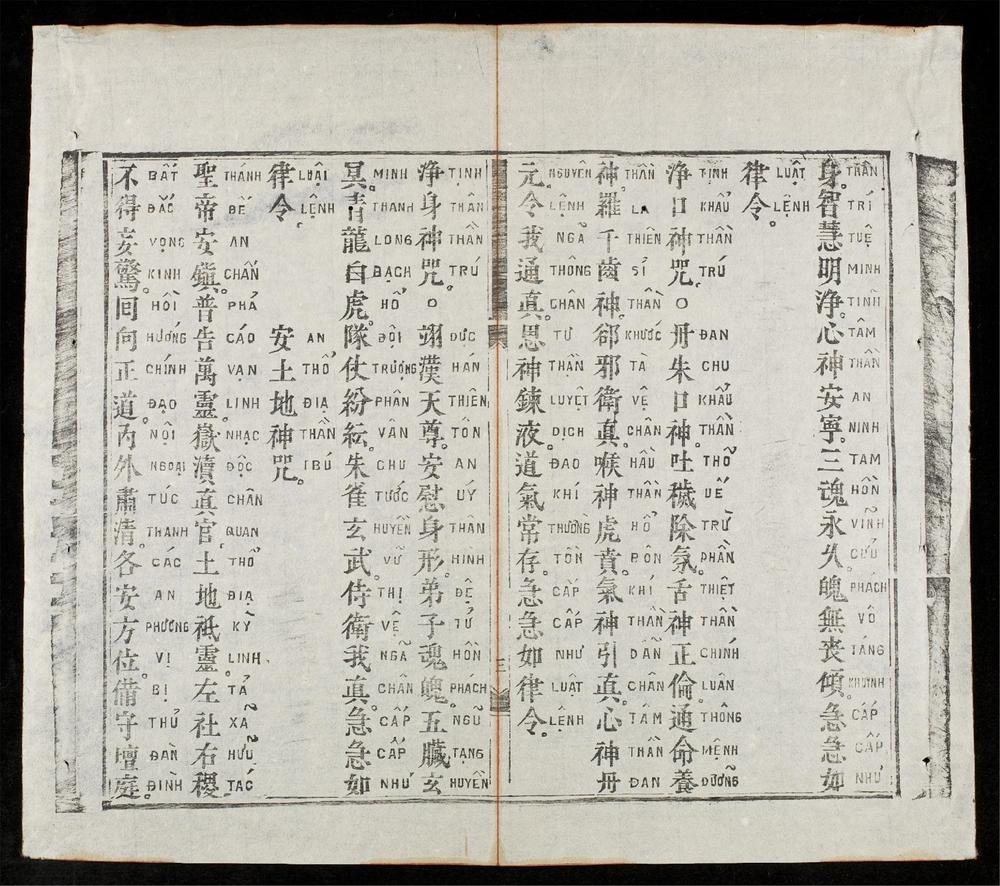 身智慧明淨。心神安寧。三魂永久。魄無喪傾。急急如
THÂN TRÍ TUỆ MINH TỊNH TÂM THẦN AN NINH TAM HỒN VĨNH CỬU PHÁCH VÔ TÁNG KHUINH CẤP CẤP NHƯ
律令。
LUẬT LỆNH
淨口神咒。○丹朱口神。吐穢除氛。舌神正倫。通命養
TỊNH KHẨU THẦN TRÚ ĐAN CHU KHẨU THẦN THỔ UẾ TRỪ PHẦN THIỆT THẦN CHÍNH LUÂN THÔNG MỆNH DƯỠNG
神。羅千齒神。卻邪衛真。喉神虎賁。氣神引真。心神丹
THẦN LA THIÊN SỈ THẦN KHƯỚC TÀ VỆ CHÂN HẦU THẦN HỔ BÔN KHÍ THẦN DẪN CHÂN TÂM THẦN ĐAN
元。令我通真。思神鍊液。道氣常存。急急如律令。
NGUYÊN LỆNH NGÃ THÔNG CHÂN TƯ THẦN LUYỆT DỊCH ĐẠO KHÍ THƯỜNG TỒN CẤP CẤP NHƯ LUẬT LỆNH
三
淨身神咒。○翊漢天尊。安慰身形。弟子魂魄。五臟玄
TỊNH THÂN THẦN TRÚ ĐỨC HÁN THIÊN TÔN AN ÚY THÂN HÌNH ĐỆ TỬ HỒN PHÁCH NGŨ TẠNG HUYỀN
冥。青龍白虎。隊仗紛紜。朱雀玄武。侍衛我真。急急如
MINH THANH LONG BẠCH HỔ ĐỘI TRƯỢNG PHÂN VÂN CHU TƯỚC HUYỀN VŨ THỊ VỆ NGÃ CHÂN CẤP CẤP NHƯ
律令。 安土地神咒。
LUẬI LỆNH AN THỔ ĐIẠ THẦN TRÚ
聖帝安鎮。普告萬靈。嶽瀆真官。土地祇靈。左社右稷。
THÁNH ĐẾ AN CHẤN PHẢ CÁO VẠN LINH NHẠC ĐỘC CHÂN QUAN THỔ ĐIẠ KỲ LINH TẢ XÃ HỮU TÁC
不得妄驚。囘向正道。內外肅清。各安方位。備守壇庭。
BẤT ĐẮC VỌNG KINH HỒI HƯỚNG CHÍNH ĐẠO NỘI NGOẠI TÚC THANH CÁC AN PHƯƠNG VỊ BỊ THỦ ĐÀN ĐÌNH